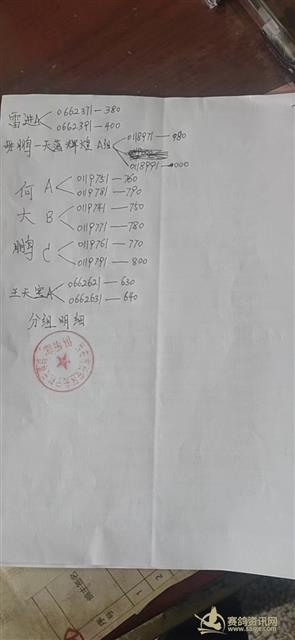 雷进A 0662371—380
0662391—400
鹏—天蓝辉煌 A组 0118971—980
0118991—000
何大鹏 A 0119751—760
0119781—790
B 0119741—750
0119771—780
C 0119761—770
0119791—800
王天宝A 0662621—630
0662631—640
分组明细
赛鸽资讯网
www.saige.com